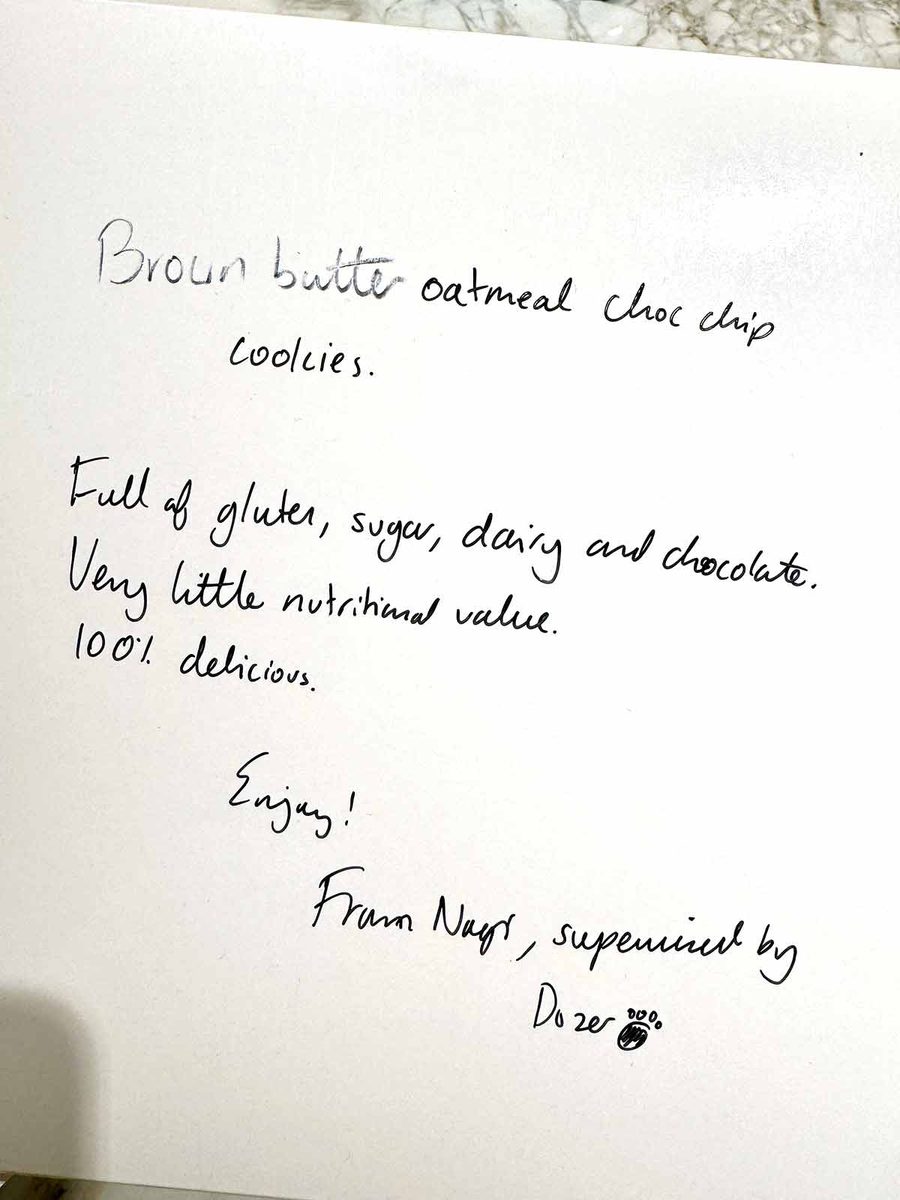 Brown butter oatmeal choc chip
cookies.
Full of gluten, sugar, dairy and chocolate.
Very little nutritional value.
100% delicious.
Enjoy!
From Nagi, supervised by
Dozer